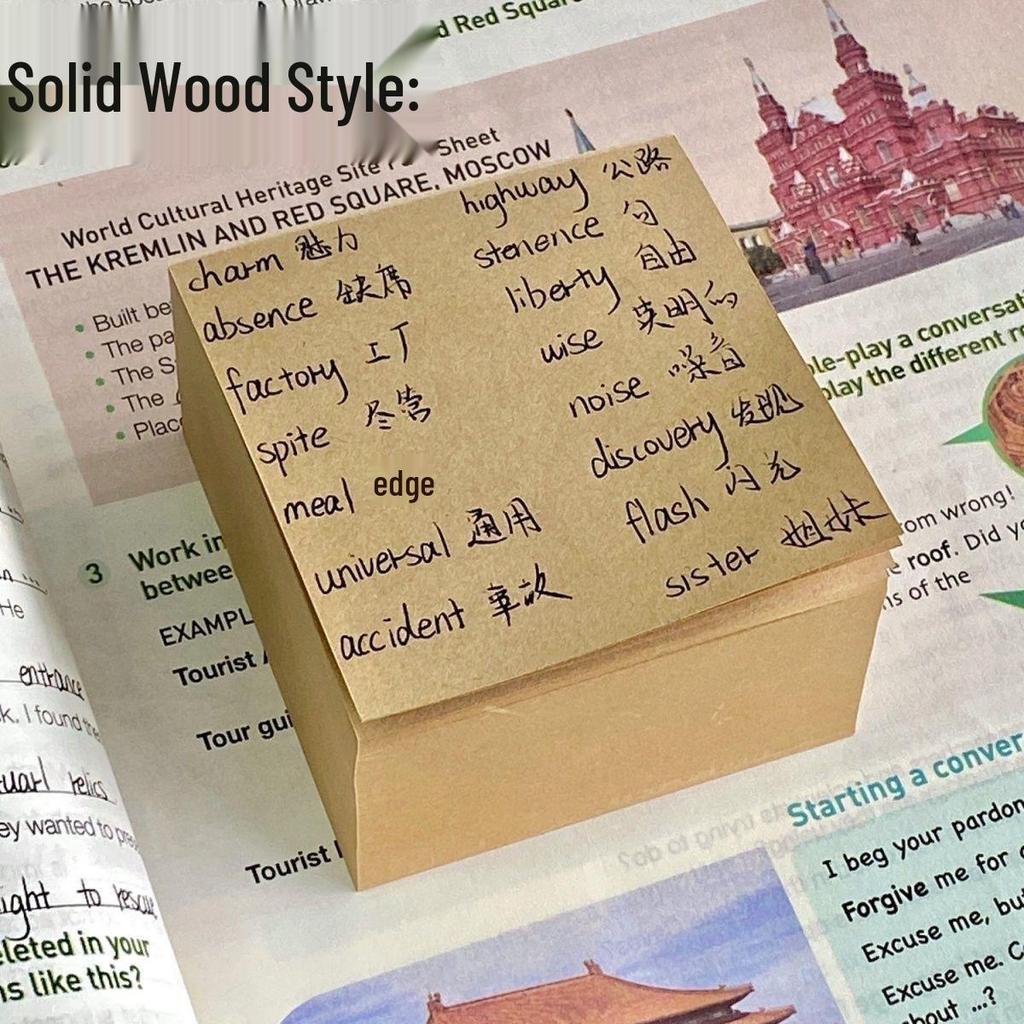 d Red Square
Solid Wood Style:
World Cultural Heritage Site Sheet
THE KREMLIN AND RED SQUARE, MOSCOW
Built be
The pa
The S
The
Plac
charm 魅力
absence 缺席
factory 工厂
spite 尽管
meal edge
universal 通用
accident 事故
highway 公路
stenence 句
liberty 自由
wise 英明的
noise 噪音
discovery 发现
flash 闪光
sister 姐妹
ole-play a conversati
play the different ro
3 Work in
betwee
EXAMPL
Tourist
Tour gui
Tourist
rom wrong!
e roof. Did yo
ns of the
He
entrance
k. I found the
tuarl relics
ey wanted to pre
ight to rescue
eleted in your
ns like this?
Starting a conver
I beg your pardon
Forgive me for
Excuse me, bu
Excuse me. C
bout ...?